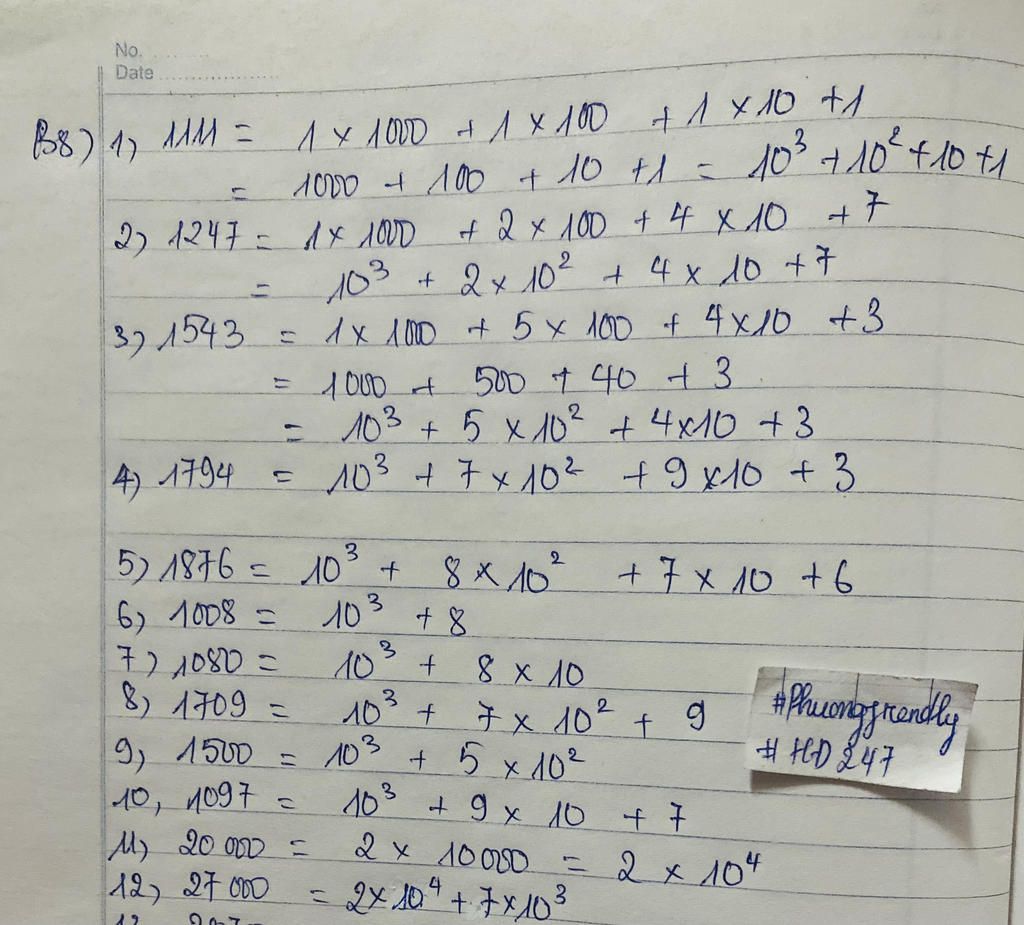 No. ..........
Date ....................
B8) 1) 1111 = 1 x 1000 + 1 x 100 + 1 x 10 + 1
= 1000 + 100 + 10 + 1 = 10³ + 10² + 10 + 1
2) 1247 = 1 x 1000 + 2 x 100 + 4 x 10 + 7
= 10³ + 2 x 10² + 4 x 10 + 7
3) 1543 = 1 x 1000 + 5 x 100 + 4 x 10 + 3
= 1000 + 500 + 40 + 3
= 10³ + 5 x 10² + 4 x 10 + 3
4) 1794 = 10³ + 7 x 10² + 9 x 10 + 3
5) 1876 = 10³ + 8 x 10² + 7 x 10 + 6
6) 1008 = 10³ + 8
7) 1080 = 10³ + 8 x 10
8) 1709 = 10³ + 7 x 10² + 9
9) 1500 = 10³ + 5 x 10²
10, 1097 = 10³ + 9 x 10 + 7
11) 20 000 = 2 x 10000 = 2 x 10⁴
12) 27 000 = 2 x 10⁴ + 7 x 10³
#Phuongfrendly
#HD247